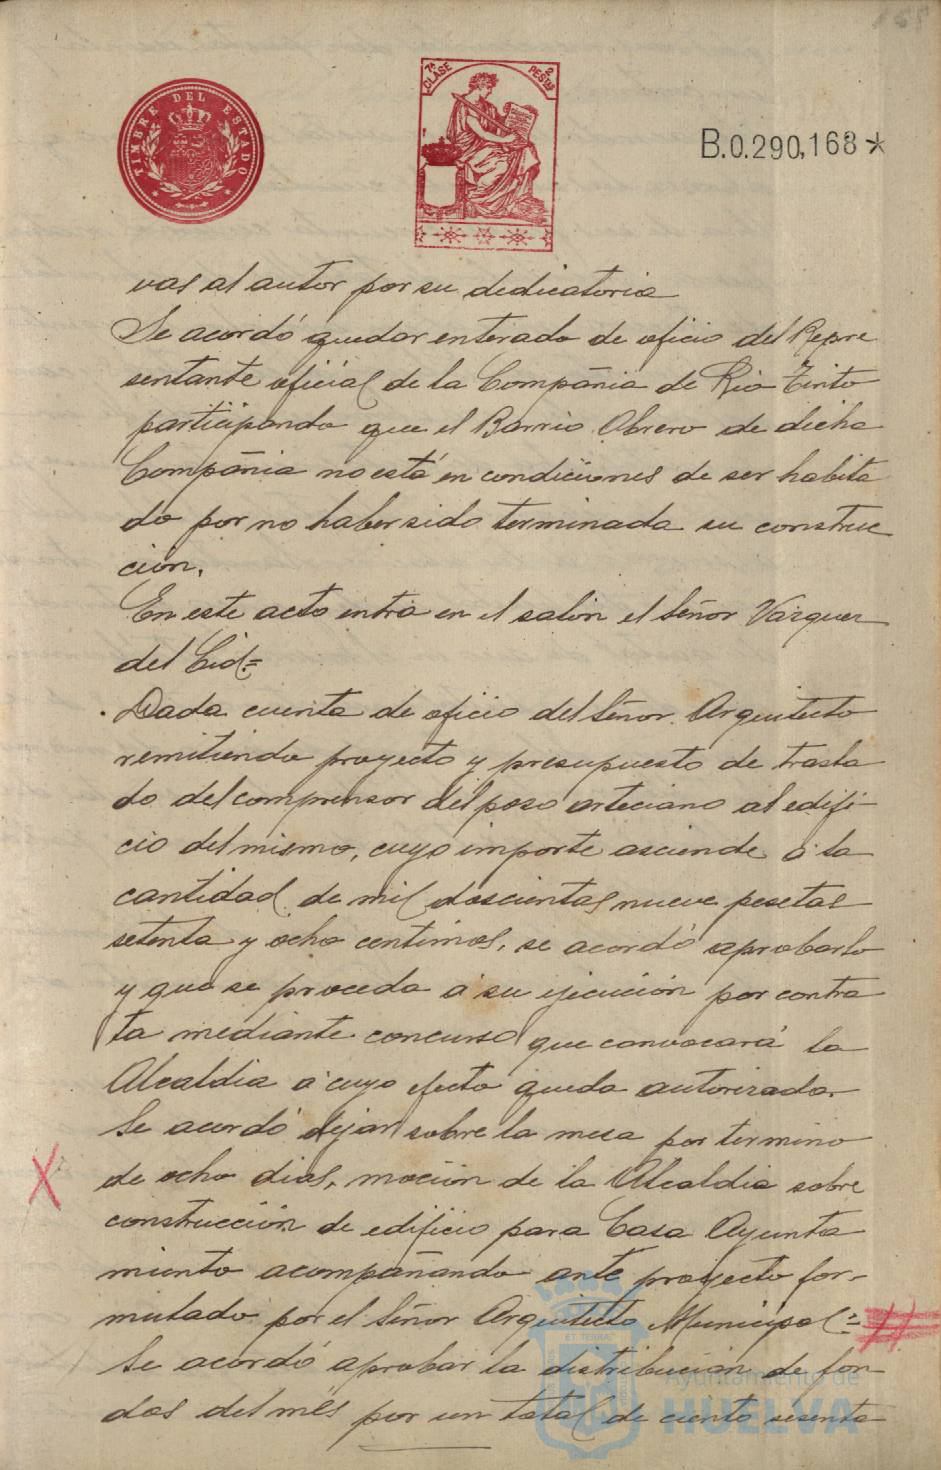 TIMBRE DEL ESTADO
7ª CLASE 2 PESTAS
B.0.290,168*
vas al autor por su dedicatoria
Se acordó quedar enterado de oficio del Repre
sentante oficial de la Compañia de Rio Tinto
participando que el Barrio Obrero de dicha
Compañia no está en condiciones de ser habita
do por no haber sido terminada su construc
cion.
En este acto entra en el salón el Señor Vazquez
del Cid=
Dada cuenta de oficio del Señor Arquitecto
remitiendo proyecto y presupuesto de trasla
do del comprensor del poso arteciano al edifi-
cio del mismo, cuyo importe asciende á la
cantidad de mil doscientas nueve pesetas
setenta y ocho centimos, se acordó aprobarlo
y que se proceda á su ejecución por contra
ta mediante concurso que convocará la
Alcaldia á cuyo efecto queda autorizada.
Se acordó dejar sobre la mesa por termino
de ocho dias, moción de la Alcaldia sobre
construcción de edificio para Casa Ayunta
miento acompañando ante proyecto for-
mulado por el Señor Arquitecto Municipal=
Se acordó aprobar la distribución de fon-
dos del mes por un total de ciento sesenta
ET TERRAE
Ayuntamiento de
HUELVA